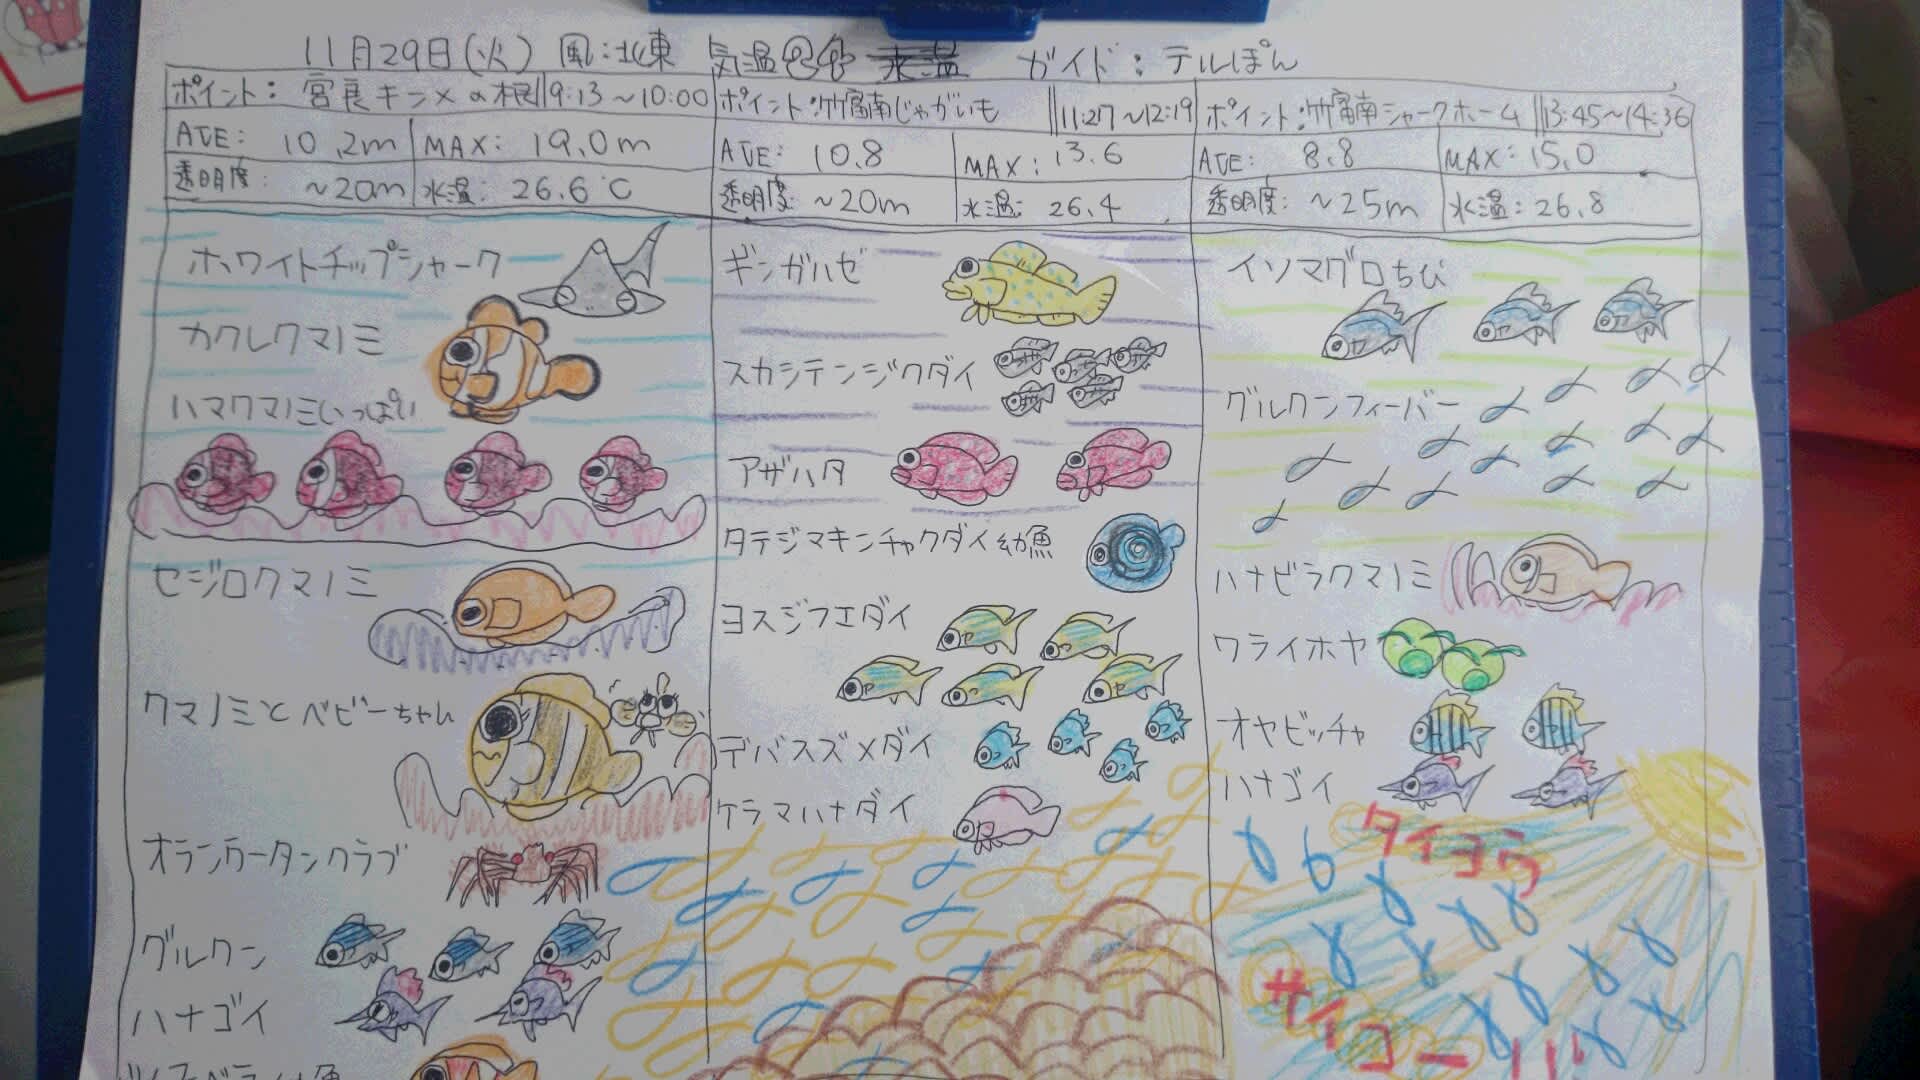 11月29日(火) 風:北東 気温 水温 ガイド:テルぽん
ポイント:宮良キンメの根 9:13~10:00
AVE: 10.2m MAX: 19.0m
透明度: ~20m 水温: 26.6℃
ホワイトチップシャーク
カクレクマノミ
ハマクマノミいっぱい
セジロクマノミ
クマノミとベビーちゃん
オランウータンクラブ
グルクン
ハナゴイ
ポイント:竹富南じゃがいも 11:27~12:19
AVE: 10.8 MAX: 13.6
透明度: ~20m 水温: 26.4
ギンガハゼ
スカシテンジクダイ
アザハタ
タテジマキンチャクダイ幼魚
ヨスジフエダイ
デバスズメダイ
ケラマハナダイ
ポイント:竹富南シャークホーム 13:45~14:36
AVE: 8.8 MAX: 15.0
透明度: ~25m 水温: 26.8
イソマグロちび
グルクンフィーバー
ハナビラクマノミ
ワライホヤ
オヤビッチャ
ハナゴイ
タイヨウ
サイコー